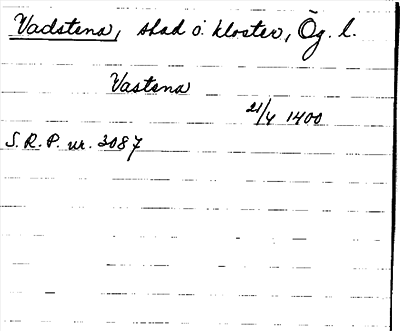 Vadstena, stad o. kloster, Ög. l.
Vastena
21/4 1400
S.R.P. nr. 3087